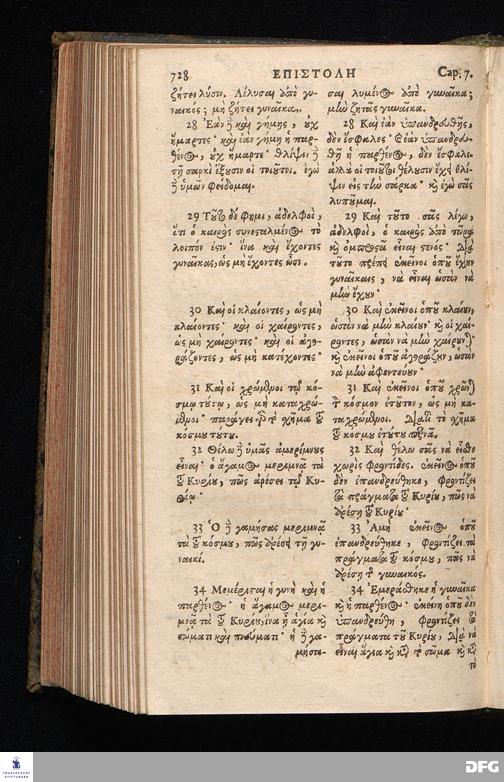 728
ΕΠΙΣΤΟΛΗ
Cap. 7.
ζήτει λύσιν. Λέλυσαι ἀπὸ γυ-
ναικός; μὴ ζήτει γυναῖκα.
28 Ἐὰν ἢ καὶ γήμῃς, οὐχ
ἥμαρτες· καὶ ἐὰν γήμῃ ἡ παρ-
θένος, οὐχ ἥμαρτε· θλίψιν δὲ
τῇ σαρκὶ ἕξουσιν οἱ τοιοῦτοι. ἐγὼ
δὲ ὑμῶν φείδομαι.
29 Τοῦτο δέ φημι, ἀδελφοί,
ὅτι ὁ καιρὸς συνεσταλμένος τὸ
λοιπόν ἐστιν· ἵνα καὶ ἔχοντες
γυναῖκας, ὡς μὴ ἔχοντες ὦσιν.
30 Καὶ οἱ κλαίοντες, ὡς μὴ
κλαίοντες· καὶ οἱ χαίροντες,
ὡς μὴ χαίροντες· καὶ οἱ ἀγο-
ράζοντες, ὡς μὴ κατέχοντες·
31 Καὶ οἱ χρώμενοι τῷ κό-
σμῳ τούτῳ, ὡς μὴ καταχρώ-
μενοι· παράγει γὰρ τὸ σχῆμα τοῦ
κόσμου τούτου.
32 Θέλω δὲ ὑμᾶς ἀμερίμνους
εἶναι· ὁ ἄγαμος μεριμνᾷ τὰ
τοῦ Κυρίου, πῶς ἀρέσει τῷ Κυ-
ρίῳ·
33 Ὁ δὲ γαμήσας μεριμνᾷ
τὰ τοῦ κόσμου, πῶς ἀρέσει τῇ γυ-
ναικί.
34 Μεμέρισται ἡ γυνὴ καὶ ἡ
παρθένος· ἡ ἄγαμος μερι-
μνᾷ τὰ τοῦ Κυρίου, ἵνα ᾖ ἁγία καὶ
σώματι καὶ πνεύματι· ἡ δὲ γα-
μήσα-
σαι λυμένος ἀπὸ γυναῖκα;
μὴν ζητᾷς γυναῖκα.
28 Καὶ ἐὰν ὑπανδρευθῇς,
δὲν ἔσφαλες· καὶ ἐὰν ὑπανδρευ-
θῇ ἡ παρθένος, δὲν ἔσφαλε.
ἀλλὰ οἱ τοιοῦτοι θέλουσιν ἔχῃ θλί-
ψιν εἰς τὴν σάρκα· καὶ ἐγὼ σᾶς
λυποῦμαι.
29 Καὶ τοῦτο σᾶς λέγω,
ἀδελφοί, ὁ καιρὸς ἀπὸ τώρα
καὶ ὀμπροστὰ εἶναι στενός· διὰ
τοῦτο πρέπει ἐκεῖνοι ὁποῦ ἔχουν
γυναίκαις, νὰ εἶναι ὡσὰν νὰ
μὴν ἔχουν·
30 Καὶ ἐκεῖνοι ὁποῦ κλαίουν,
ὡσὰν νὰ μὴν κλαίουν· καὶ οἱ χαί-
ροντες, ὡσὰν νὰ μὴν χαίρουνται·
καὶ ἐκεῖνοι ὁποῦ ἀγοράζουν, ὡσὰν
νὰ μὴν ἀφεντεύουν·
31 Καὶ ἐκεῖνοι ὁποῦ χρῶνται
τὸν κόσμον ἐτοῦτον, ὡς μὴ κα-
ταχρώμενοι. Διατὶ τὸ σχῆμα
τοῦ κόσμου ἐτούτου περνᾷ.
32 Καὶ θέλω σᾶς νὰ εἶσθε
χωρὶς φροντίδες. ἐκεῖνος ὁποῦ
δὲν ἐπανδρεύθηκε, φροντίζει
τὰ πράγματα τοῦ Κυρίου, πῶς νὰ
ἀρέσῃ τοῦ Κυρίου·
33 Ἀμὴ ἐκεῖνος ὁποῦ
ἐπανδρεύθηκε, φροντίζει τὰ
πράγματα τοῦ κόσμου, πῶς νὰ
ἀρέσῃ τῆς γυναικός.
34 Ἐμεράσθηκε ἡ γυναῖκα
καὶ ἡ παρθένος· ἐκείνη ὁποῦ δὲν
ὑπανδρεύθη, φροντίζει τὰ
πράγματα τοῦ Κυρίου, διὰ νὰ
εἶναι ἅγια καὶ κατὰ τὸ σῶμα καὶ κατὰ
τὸ
FRANCKESCHE STIFTUNGEN
DFG